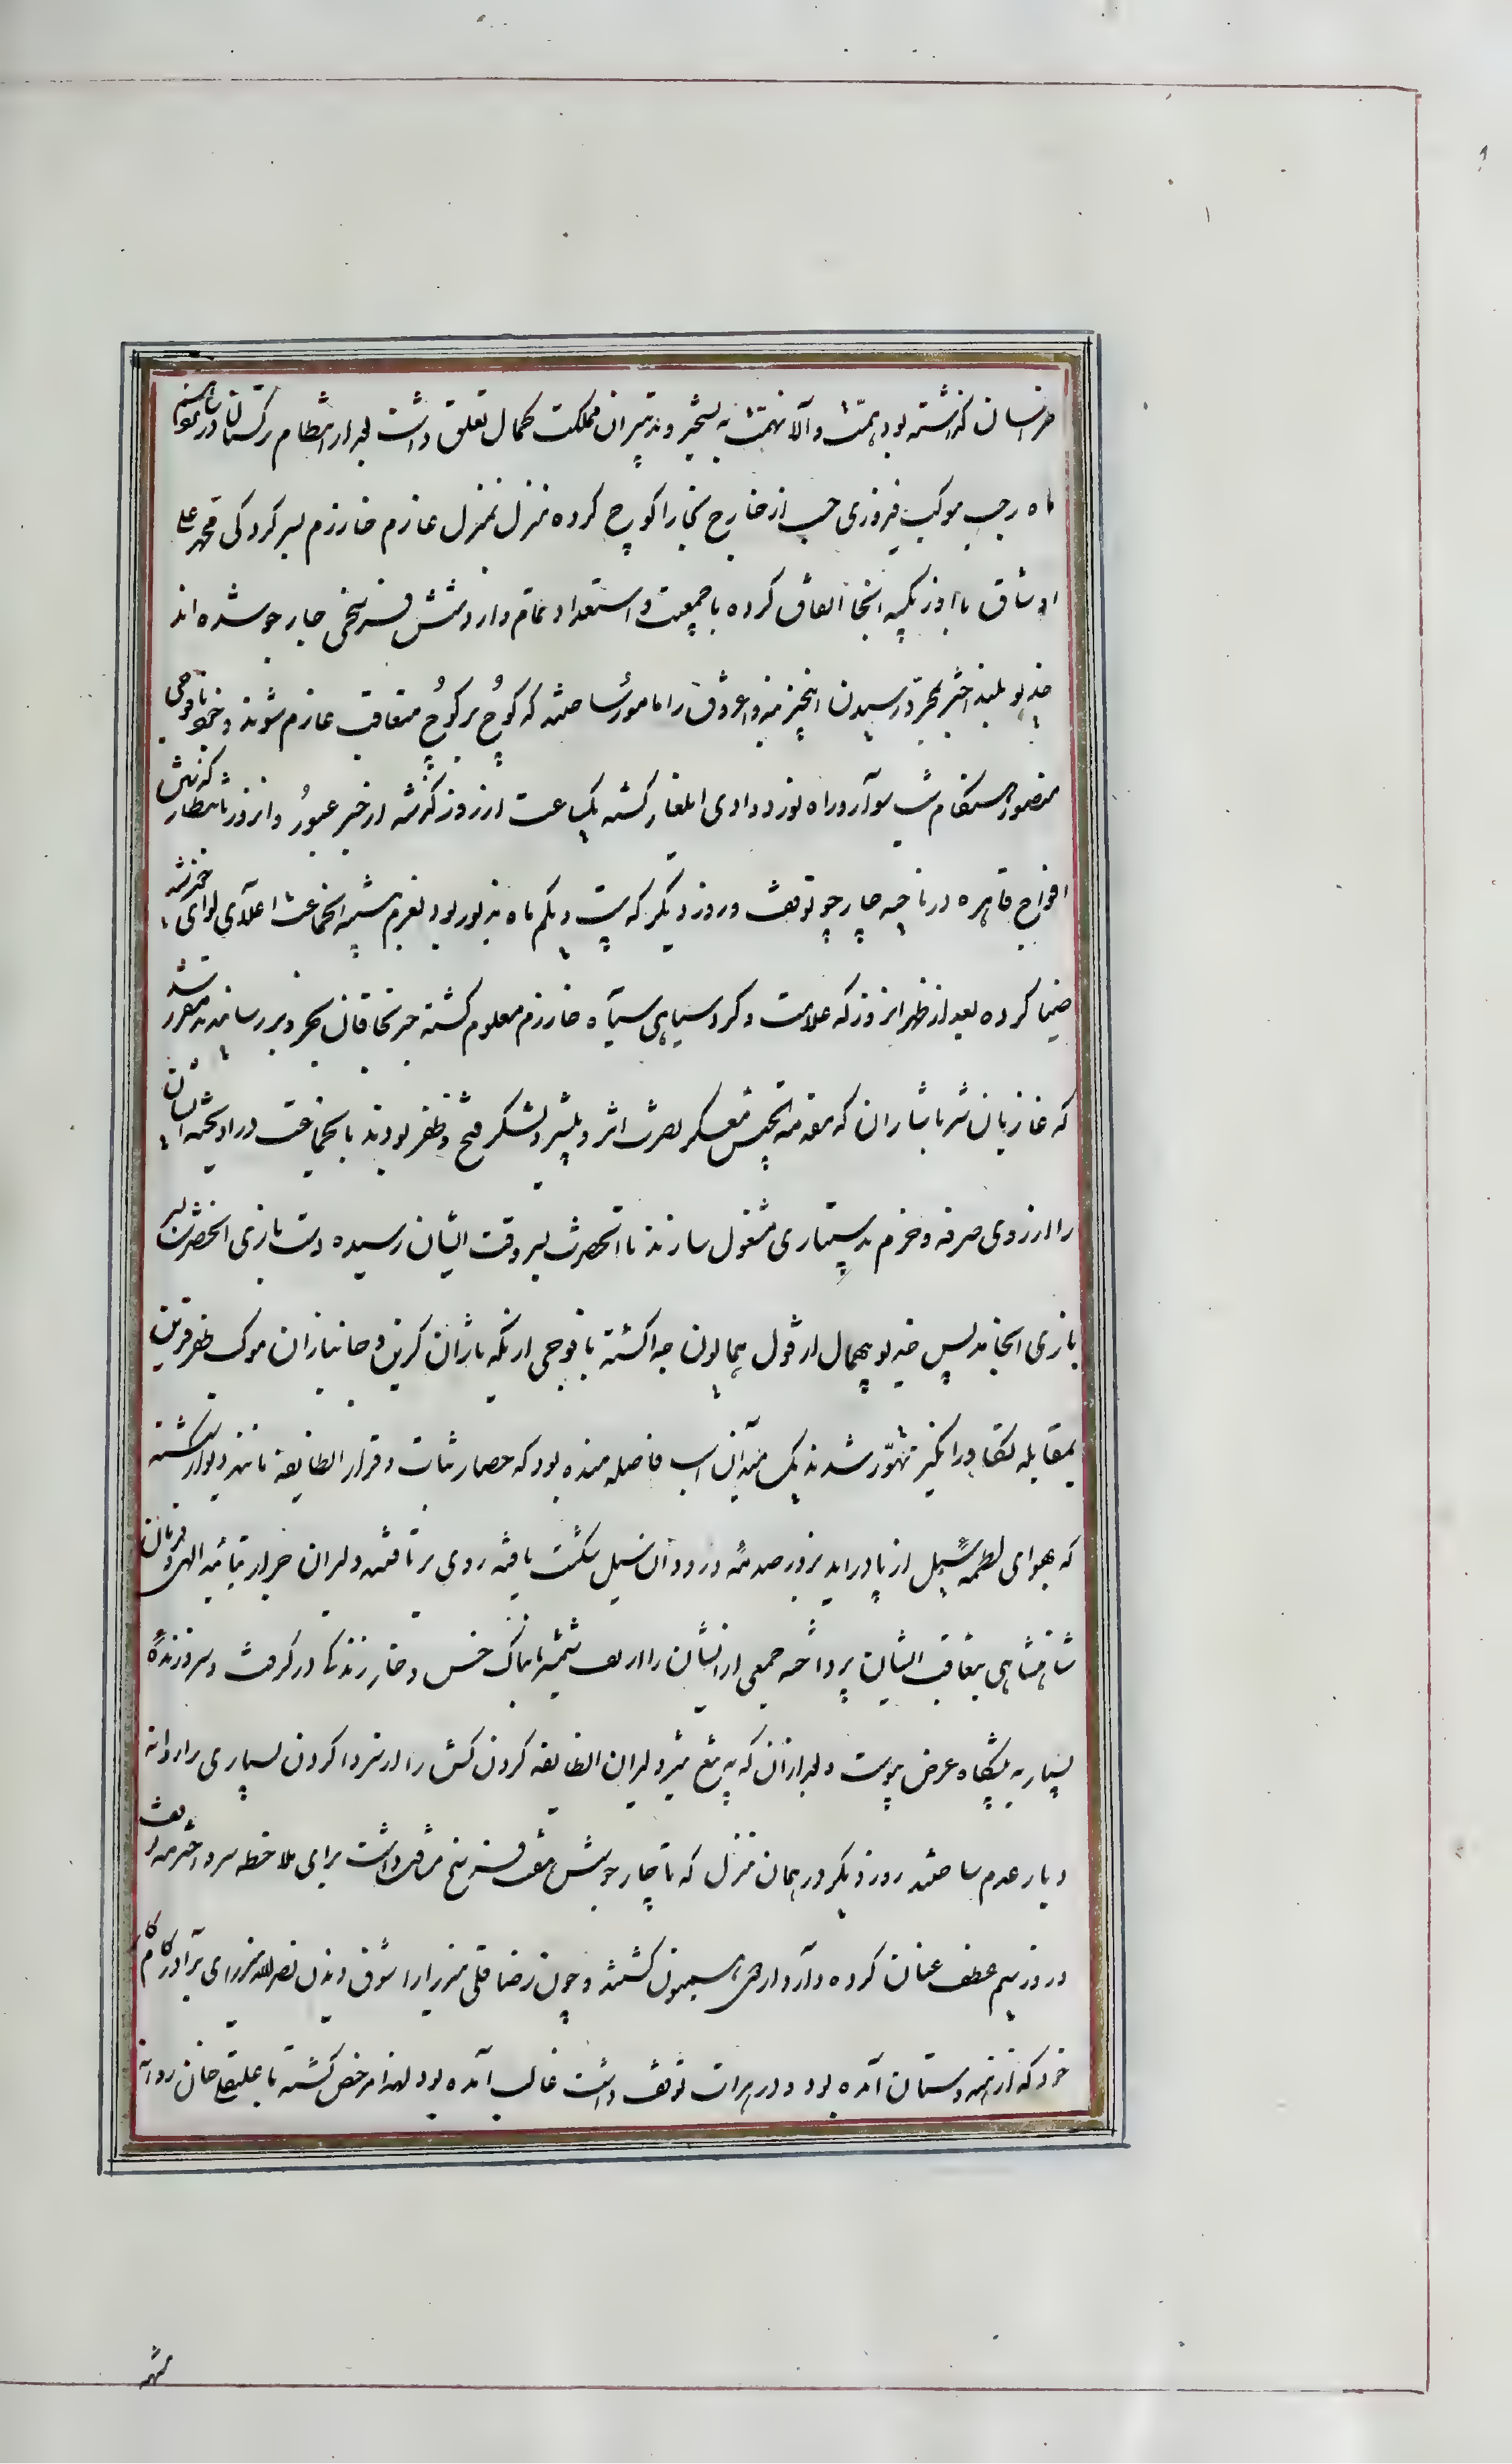 خراسان گذشته بود همت والا نهمت به تسخیر و تدمیر ان مملکت کمال تعلق داشت بعد از انتظام ترکستان در شانزدهم
ماه رجب موکب فیروزی از خارج بخارا کوچ کرده منزل بمنزل عازم خوارزم سرکردگی محمد علی
اوشاق با اوزبکیه انجا اتفاق کرده با جمعیت و استعداد تمام وارد شش فرسخی چارجو شده اند
خدیو بلند اختر بمجرد رسیدن اینخبر بنه و اغروق را مامور ساختند که کوچ بر کوچ متعاقب عازم شوند و خود با فوجی
سوار و راه نورد وادی ایلغار گشته یکساعت از روز گذشته از جسر عبور و انروز بانتظار گذشتن
افواج قاهره در ناحیه چارجو توقف و روز دیگر که بیست و یکم ماه مزبور بود بعزم تنبیه انجماعت اعلای لوای خورشید
ضیا کرده بعد از ظهر انروز که علامت و گرد سیاهی سپاه خوارزم معلوم گشته خبر بخاقان بحر و بر رسانیدند مقرر شد
که غازیان که مقدمة الجیش معسکر نصرت اثر و پیشرو لشکر فتح و ظفر بودند با انجماعت در اویخته ایشان
را از روی صرفه و حزم مشغول سازند تا انحضرت بسر وقت ایشان رسیده دست بازی انحضرت
بازی انجامد پس خدیو بیهمال از قول همایون جدا گشته با فوجی از یکه تازان گزین و جانبازان موکب ظفر قرین
بمقابله تکاور انگیز تهور شدند یک میدان اسب فاصله مانده بود که حصار ثبات و قرار انطایفه مانند دیوار شکسته
که بهوای لطمه سیل از پا دراید بزور صدمه ورود ان سیل شکست یافته روی بر تافتند و دلیران جرار بتائید الهی و فرمان
شاهنشاهی بتعاقب ایشان پرداخته جمعی از ایشان را از تف شمشیر تابناک خس و خار زندگی در گرفت و سر و زنده
بسیار به پیشگاه عرض پیوست و بعد از ان که به تیغ تیز دلیران انطایفه گردن کش را از سر وا کردن بسیاری را روانه
دیار عدم ساختند روز دیگر در همان منزل که تا چارجو شش هفت فرسخ مسافت داشت برای ملاحظه سر و اخترمه توقف
و روز سیم عطف عنان کرده وارد اردوی همیون گشتند و چون رضا قلی میرزا را شوق دیدن نصرالله میرزای برادر کامکار
خود که از هندوستان آمده بود و در هرات توقف داشت غالب آمده بود لهذا مرخص گشته با علیقلی خان روانه